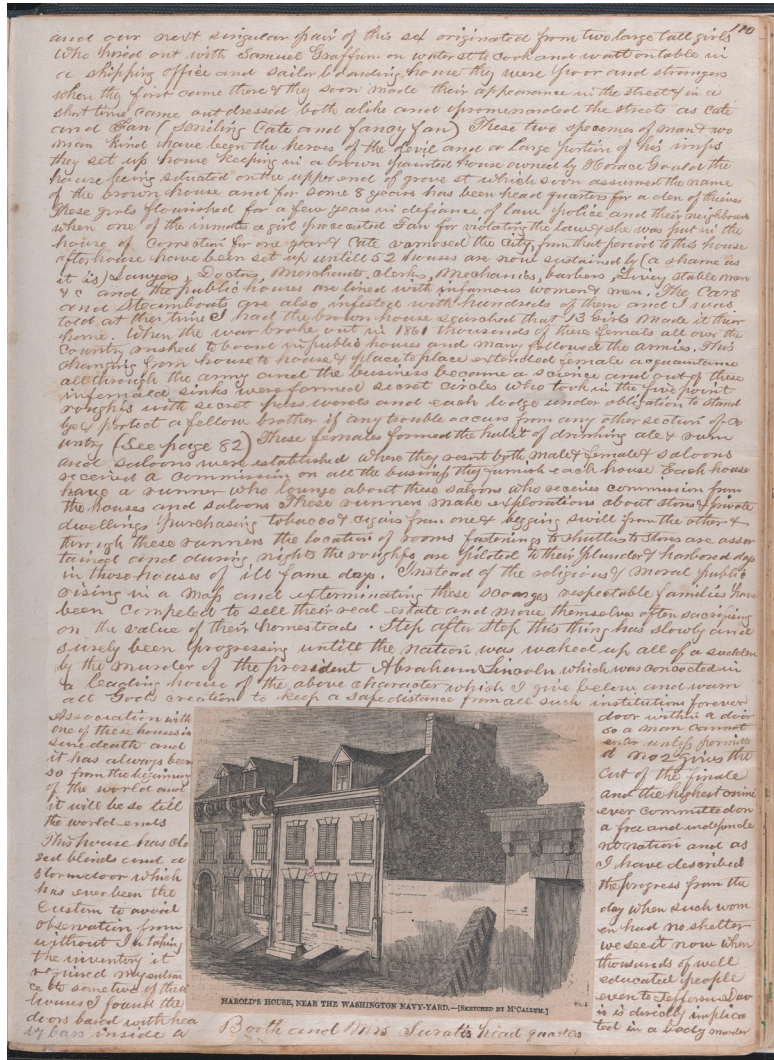 180
and our next singular pair of this sex originated from two large tall girls
who hired out with Samuel Graffum on water st to cook and wait on table in
a shipping office and sailor boarding house they were poor and strangers
when they first came there & they soon made their appearance in the street & in a
short time came out dressed both alike and promenaded the streets as Cate
and Fan (Smiling Cate and fancy fan) These two specimes of man & wo
man kind have been the heroes of the devil and a large portion of his imps
they set up house keeping in a brown painted house owned by Horace Gould the
house being situated on the upper end of grove st which soon assumed the name
of the brown house and for some 8 years has been head quarters for a den of thieves
These girls flourished for a few years in defiance of law police and their neighbours
when one of the inmates a girl prosecuted Fan for violating the law & she was put in the
house of Correction for one year & Cate vamosed the City, from that period to this house
after house have been set up untill 52 houses are now sustained by (a shame as
it is) Lawyers, Doctors, Merchants, clerks, Mechanics, barbers, Livery stable men
& c and the public houses are lined with infamous women & men. The Cars
and Steamboats are also infested with hundreds of them and I was
told at the time I had the brown house searched that 13 Girls made it their
home. When the war broke out in 1861 thousands of these females all over the
Country rushed to board in public houses and many followed the armies. This
changing from house to house & place to place extended female acquaintance
all through the army and the business became a science and out of these
infernal sinks were formed secret circles who took in the five point
roughs with secret pass words and each lodge under obligation to stand
by & protect a fellow brother if any trouble occurs from any other section of co
untry (See page 82) These females formed the habit of drinking ale & rum
and saloons were established where they resort both male & female & saloons
received a commission on all the business they furnish each house Each house
have a runner who lounge about these saloons who receives commission from
the houses and saloons These runners make explorations about stores & private
dwellings purchasing tobacco & cigars from one & begging swill from the other &
through these runners the location of rooms fastenings to shutters to stores are ascer
tained and during nights the roughs are piloted to their plunder & harbored days
in those houses of ill fame days. Instead of the religious & moral public
rising in a mass and exterminating these scourges respectable families have
been compeled to sell their real estate and move themselves often sacrifising
on the value of their homesteads. Step after Step this thing has slowly and
surely been progressing untill the nation was waked up all of a sudden
by the murder of the president Abraham Lincoln which was concocted in
a leading house of the above character which I give below and warn
all Gods creation to keep a safe distance from all such institutions forever
Association with
one of these houses is
sure death and
it has always been
so from the beginning
of the world and
it will be so till
the world ends
This house has clo
sed blinds and a
storm door which
has ever been the
Custom to avoid
observation from
without In taking
the inventory it
required my entran
ce to some two of these
houses I found the
doors bared with hea
vy bars inside a
door within a door
so a man cannot
enter unless permitte
d No 2 gives the
cut of the finale
and the highest crime
ever committed on
a free and independe
nt nation and as
I have described
the progress from the
day when such wom
en had no shelter
we see it now when
thousands of well
educated people
even to Jefferson Dav
is is directly implica
ted in a body murder
HAROLD'S HOUSE, NEAR THE WASHINGTON NAVY-YARD.—[SKETCHED BY McCALLUM.]
Booth and Mrs Suratts head quarters